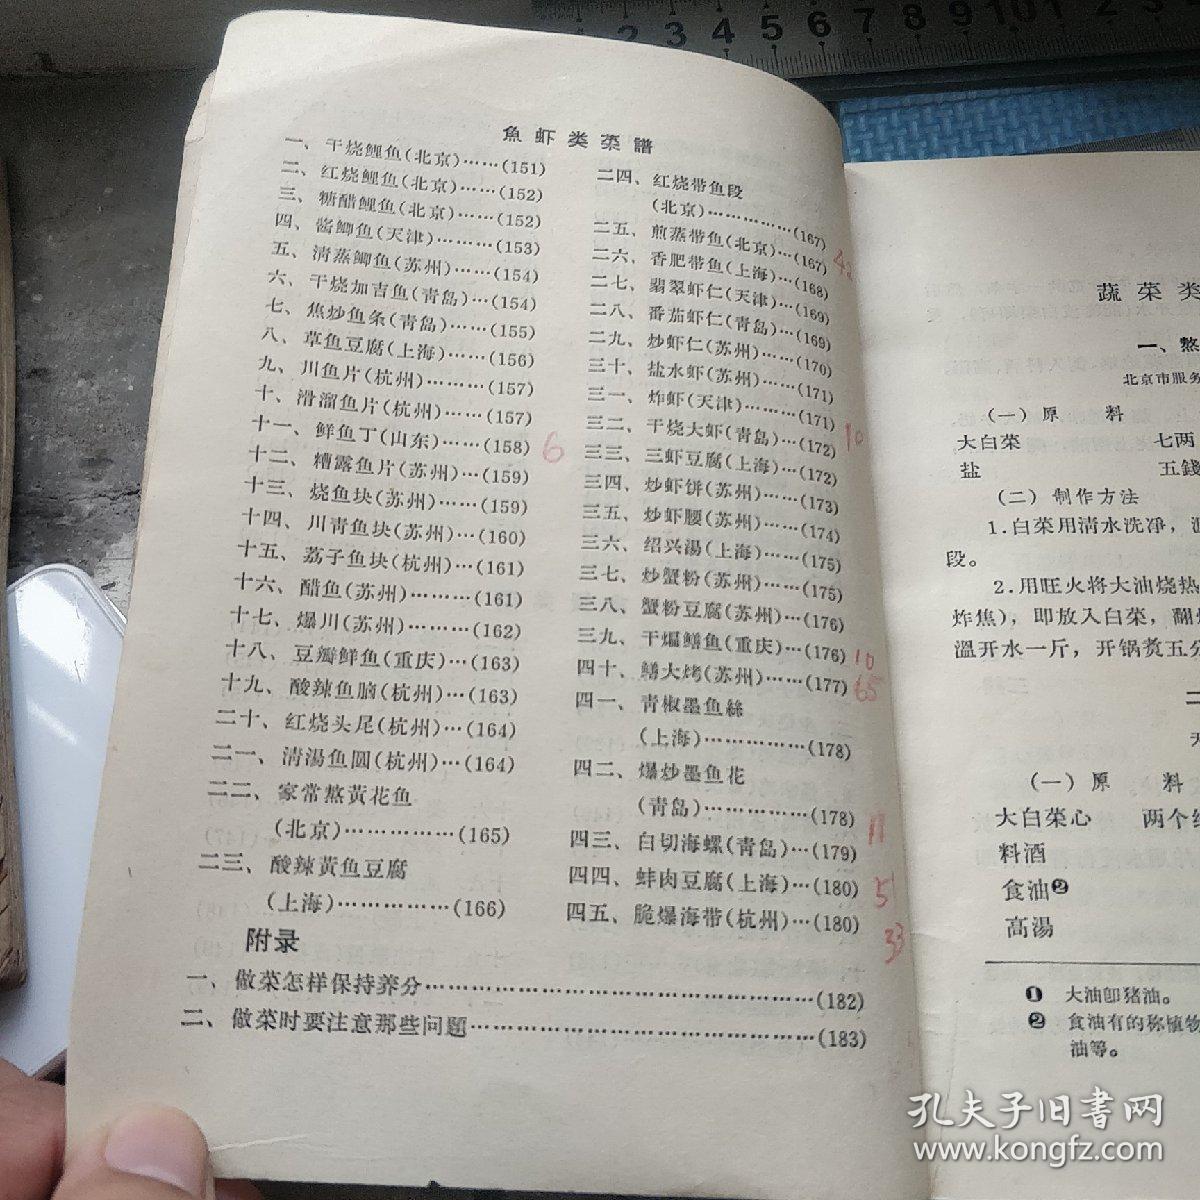 魚虾类菜譜
一、干烧鲤鱼(北京)……(151)
二、红烧鲤鱼(北京)……(152)
三、糖醋鲤鱼(北京)……(152)
四、酱鲫鱼(天津)………(153)
五、清蒸鲫鱼(苏州)……(154)
六、干烧加吉鱼(青岛)…(154)
七、焦炒鱼条(青岛)……(155)
八、草鱼豆腐(上海)……(156)
九、川鱼片(杭州)………(157)
十、滑溜鱼片(杭州)……(157)
十一、鲜鱼丁(山东)……(158)
6
十二、糟露鱼片(苏州)…(159)
十三、烧鱼块(苏州)……(159)
十四、川青鱼块(苏州)…(160)
十五、荔子鱼块(杭州)…(161)
十六、醋鱼(苏州)………(161)
十七、爆川(苏州)………(162)
十八、豆瓣鲜鱼(重庆)…(163)
十九、酸辣鱼脑(杭州)…(163)
二十、红烧头尾(杭州)…(164)
二一、清湯鱼圆(杭州)…(164)
二二、家常熬黃花鱼
(北京)……………(165)
二三、酸辣黃鱼豆腐
(上海)……………(166)
二四、红烧带鱼段
(北京)……………(167)
二五、煎蒸带鱼(北京)…(167)
二六、香肥带鱼(上海)…(168)
二七、翡翠虾仁(天津)…(169)
二八、番茄虾仁(青岛)…(169)
二九、炒虾仁(苏州)……(170)
三十、盐水虾(苏州)……(171)
三一、炸虾(天津)………(171)
三二、干烧大虾(青岛)…(172)
10
三三、三虾豆腐(上海)…(172)
三四、炒虾饼(苏州)……(173)
三五、炒虾腰(苏州)……(174)
三六、绍兴湯(上海)……(175)
三七、炒蟹粉(苏州)……(175)
三八、蟹粉豆腐(苏州)…(176)
三九、干煸鳝鱼(重庆)…(176)
10
四十、鳝大烤(苏州)……(177)
65
四一、青椒墨鱼絲
(上海)……………(178)
四二、爆炒墨鱼花
(青岛)……………(178)
11
四三、白切海螺(青岛)…(179)
四四、蚌肉豆腐(上海)…(180)
5
四五、脆爆海带(杭州)…(180)
33
附录
一、做菜怎样保持养分……………………………………(182)
二、做菜时要注意那些问题………………………………(183)
蔬菜类
一、熬
北京市服务
(一) 原　料
大白菜　七两
盐　五錢
(二) 制作方法
1.白菜用清水洗净，
段。
2.用旺火将大油烧热
炸焦)，即放入白菜，翻
溫开水一斤，开锅煑五分
二
天
(一) 原　料
大白菜心　两个
料酒
食油❷
高湯
❶ 大油卽猪油。
❷ 食油有的称植物
油等。
孔夫子旧书网
www.kongfz.com
1 2 3 4 5 6 7 8 9 10 1 2 3